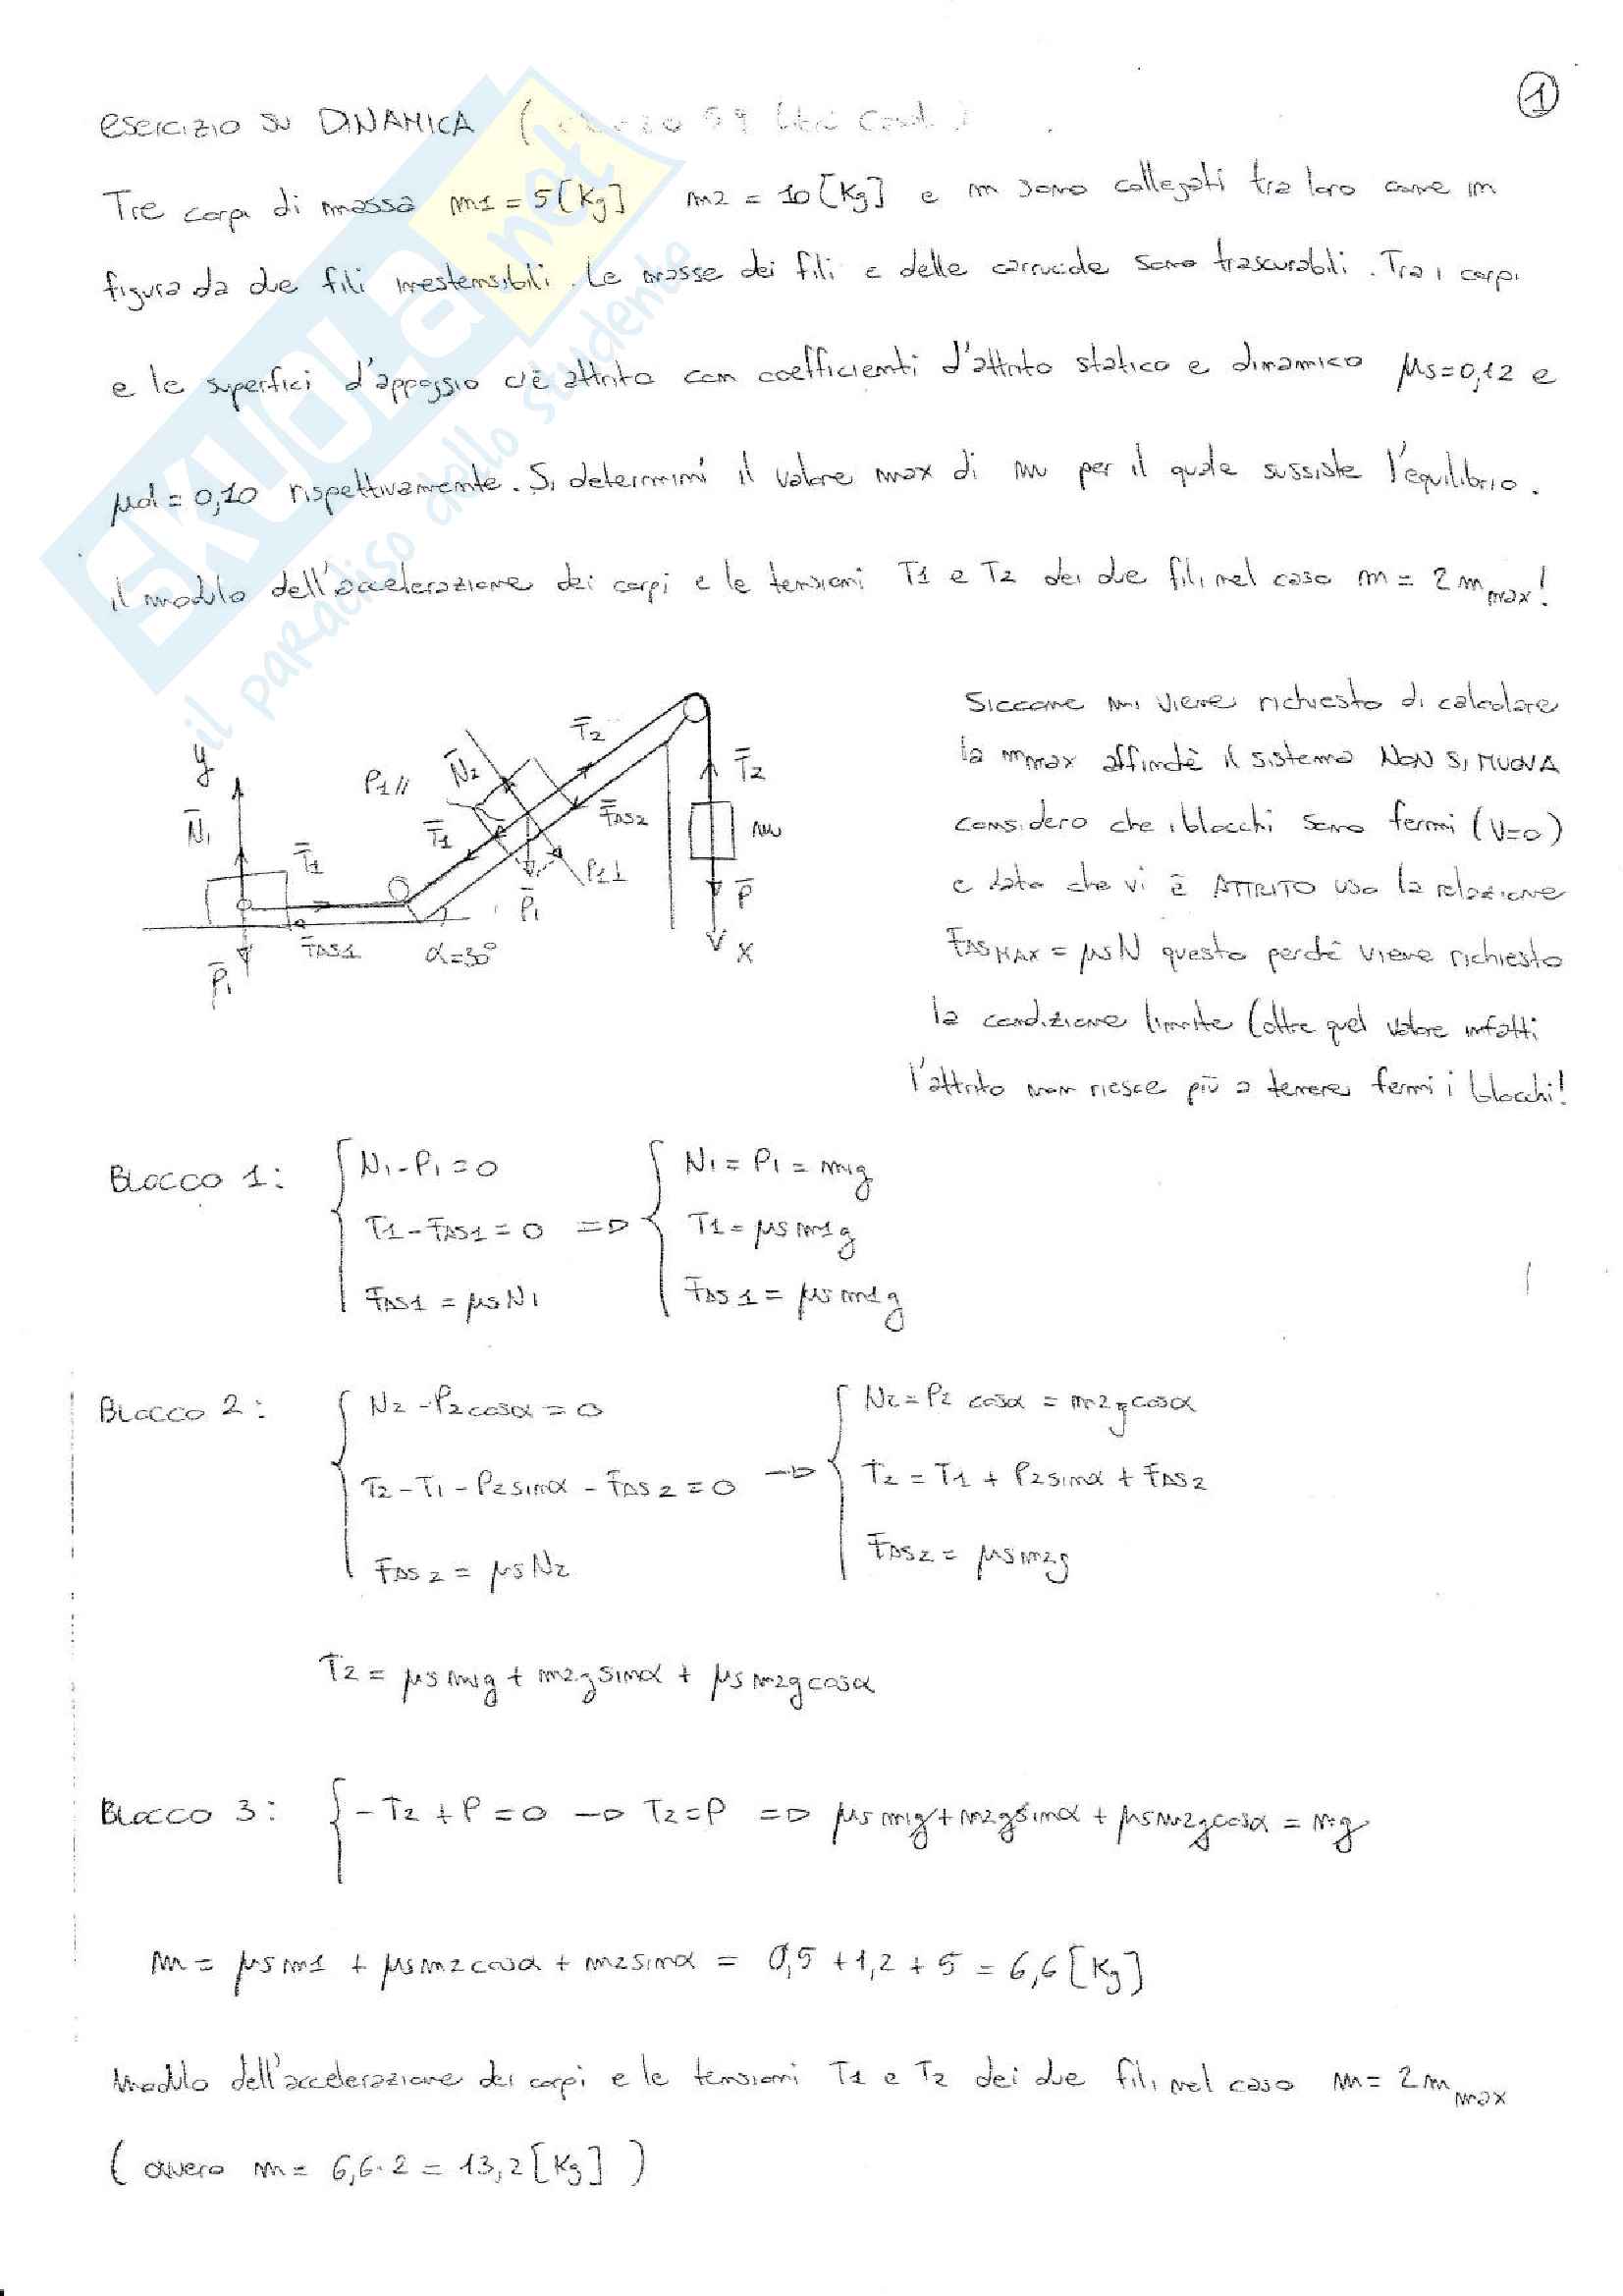 1
esercizio su DINAMICA (
Tre corpi di massa m1 = 5 [Kg] m2 = 10 [Kg] e m sono collegati tra loro come in
figura da due fili inestensibili. Le masse dei fili e delle carrucole sono trascurabili. Tra i corpi
e le superfici d'appoggio c'è attrito con coefficienti d'attrito statico e dinamico μs=0,12 e
μd = 0,10 rispettivamente. Si determini il valore max di m per il quale sussiste l'equilibrio.
il modulo dell'accelerazione dei corpi e le tensioni T1 e T2 dei due fili nel caso m = 2m max!
SKUOLA.net
il paradiso dello studente
Siccome mi viene richiesto di calcolare
la mmax affinchè il sistema NON SI MUOVA
considero che i blocchi sono fermi (V=0)
e dato che vi è ATTRITO uso la relazione
FASMAX = μsN questo perchè viene richiesto
la condizione limite (oltre quel valore infatti
l'attrito non riesce più a tenere fermi i blocchi!
y
N1
T1
FAS1
P1
α=30°
P1//
N2
T1
T2
FAS2
P1⊥
P1
T2
m
P
x
Blocco 1: N1-P1=0 N1 = P1 = m1g
T1-FAS1=0 => T1 = μsm1g
FAS1 = μsN1 FAS1 = μsm1g
Blocco 2: N2-P2cosα=0 N2=P2 cosα = m2gcosα
T2-T1-P2sinα-FAS2=0 → T2=T1+P2sinα+FAS2
FAS2 = μsN2 FAS2 = μsm2g
T2 = μsm1g + m2gsinα + μsm2gcosα
Blocco 3: -T2+P=0 → T2=P => μsm1g+m2gsinα+μsm2gcosα = mg
m = μsm1 + μsm2cosα + m2sinα = 0,5+1,2+5 = 6,6[Kg]
Modulo dell'accelerazione dei corpi e le tensioni T1 e T2 dei due fili nel caso m= 2m max
(ovvero m= 6,6·2 = 13,2[Kg])